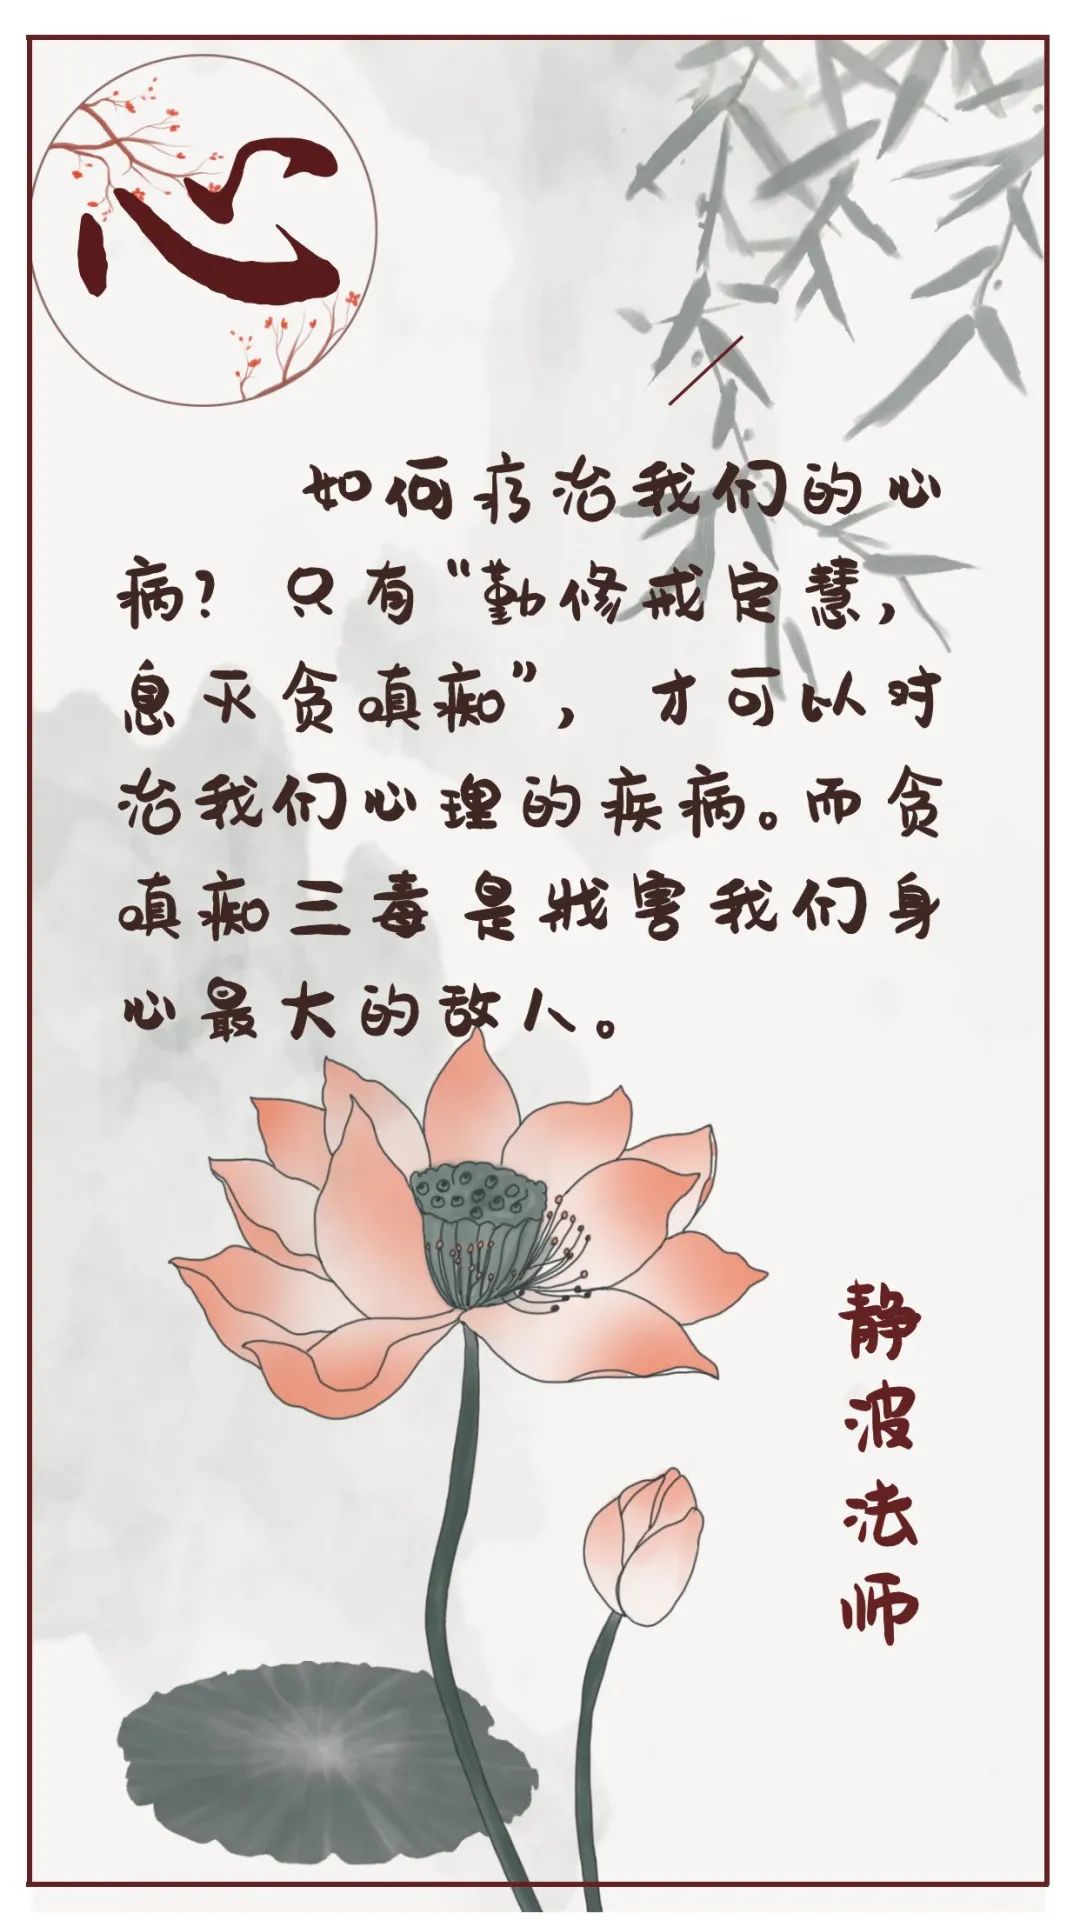 心
如何疗治我们的心
病？只有“勤修戒定慧，
息灭贪嗔痴”，才可以对
治我们心理的疾病。而贪
嗔痴三毒是戕害我们身
心最大的敌人。
静波法师